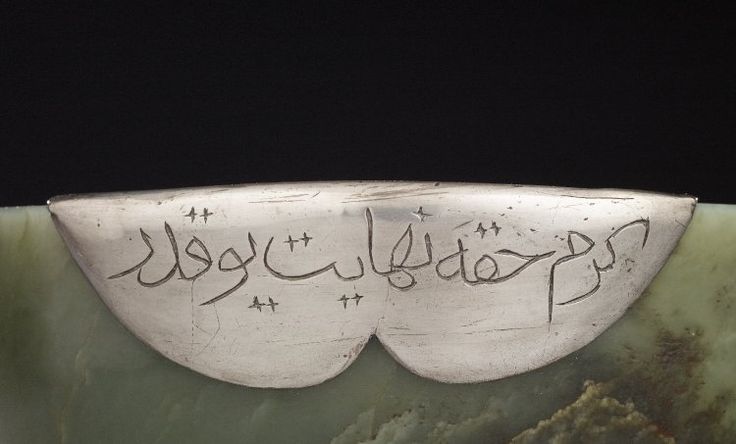 کرم حقه نهایت یوقدر